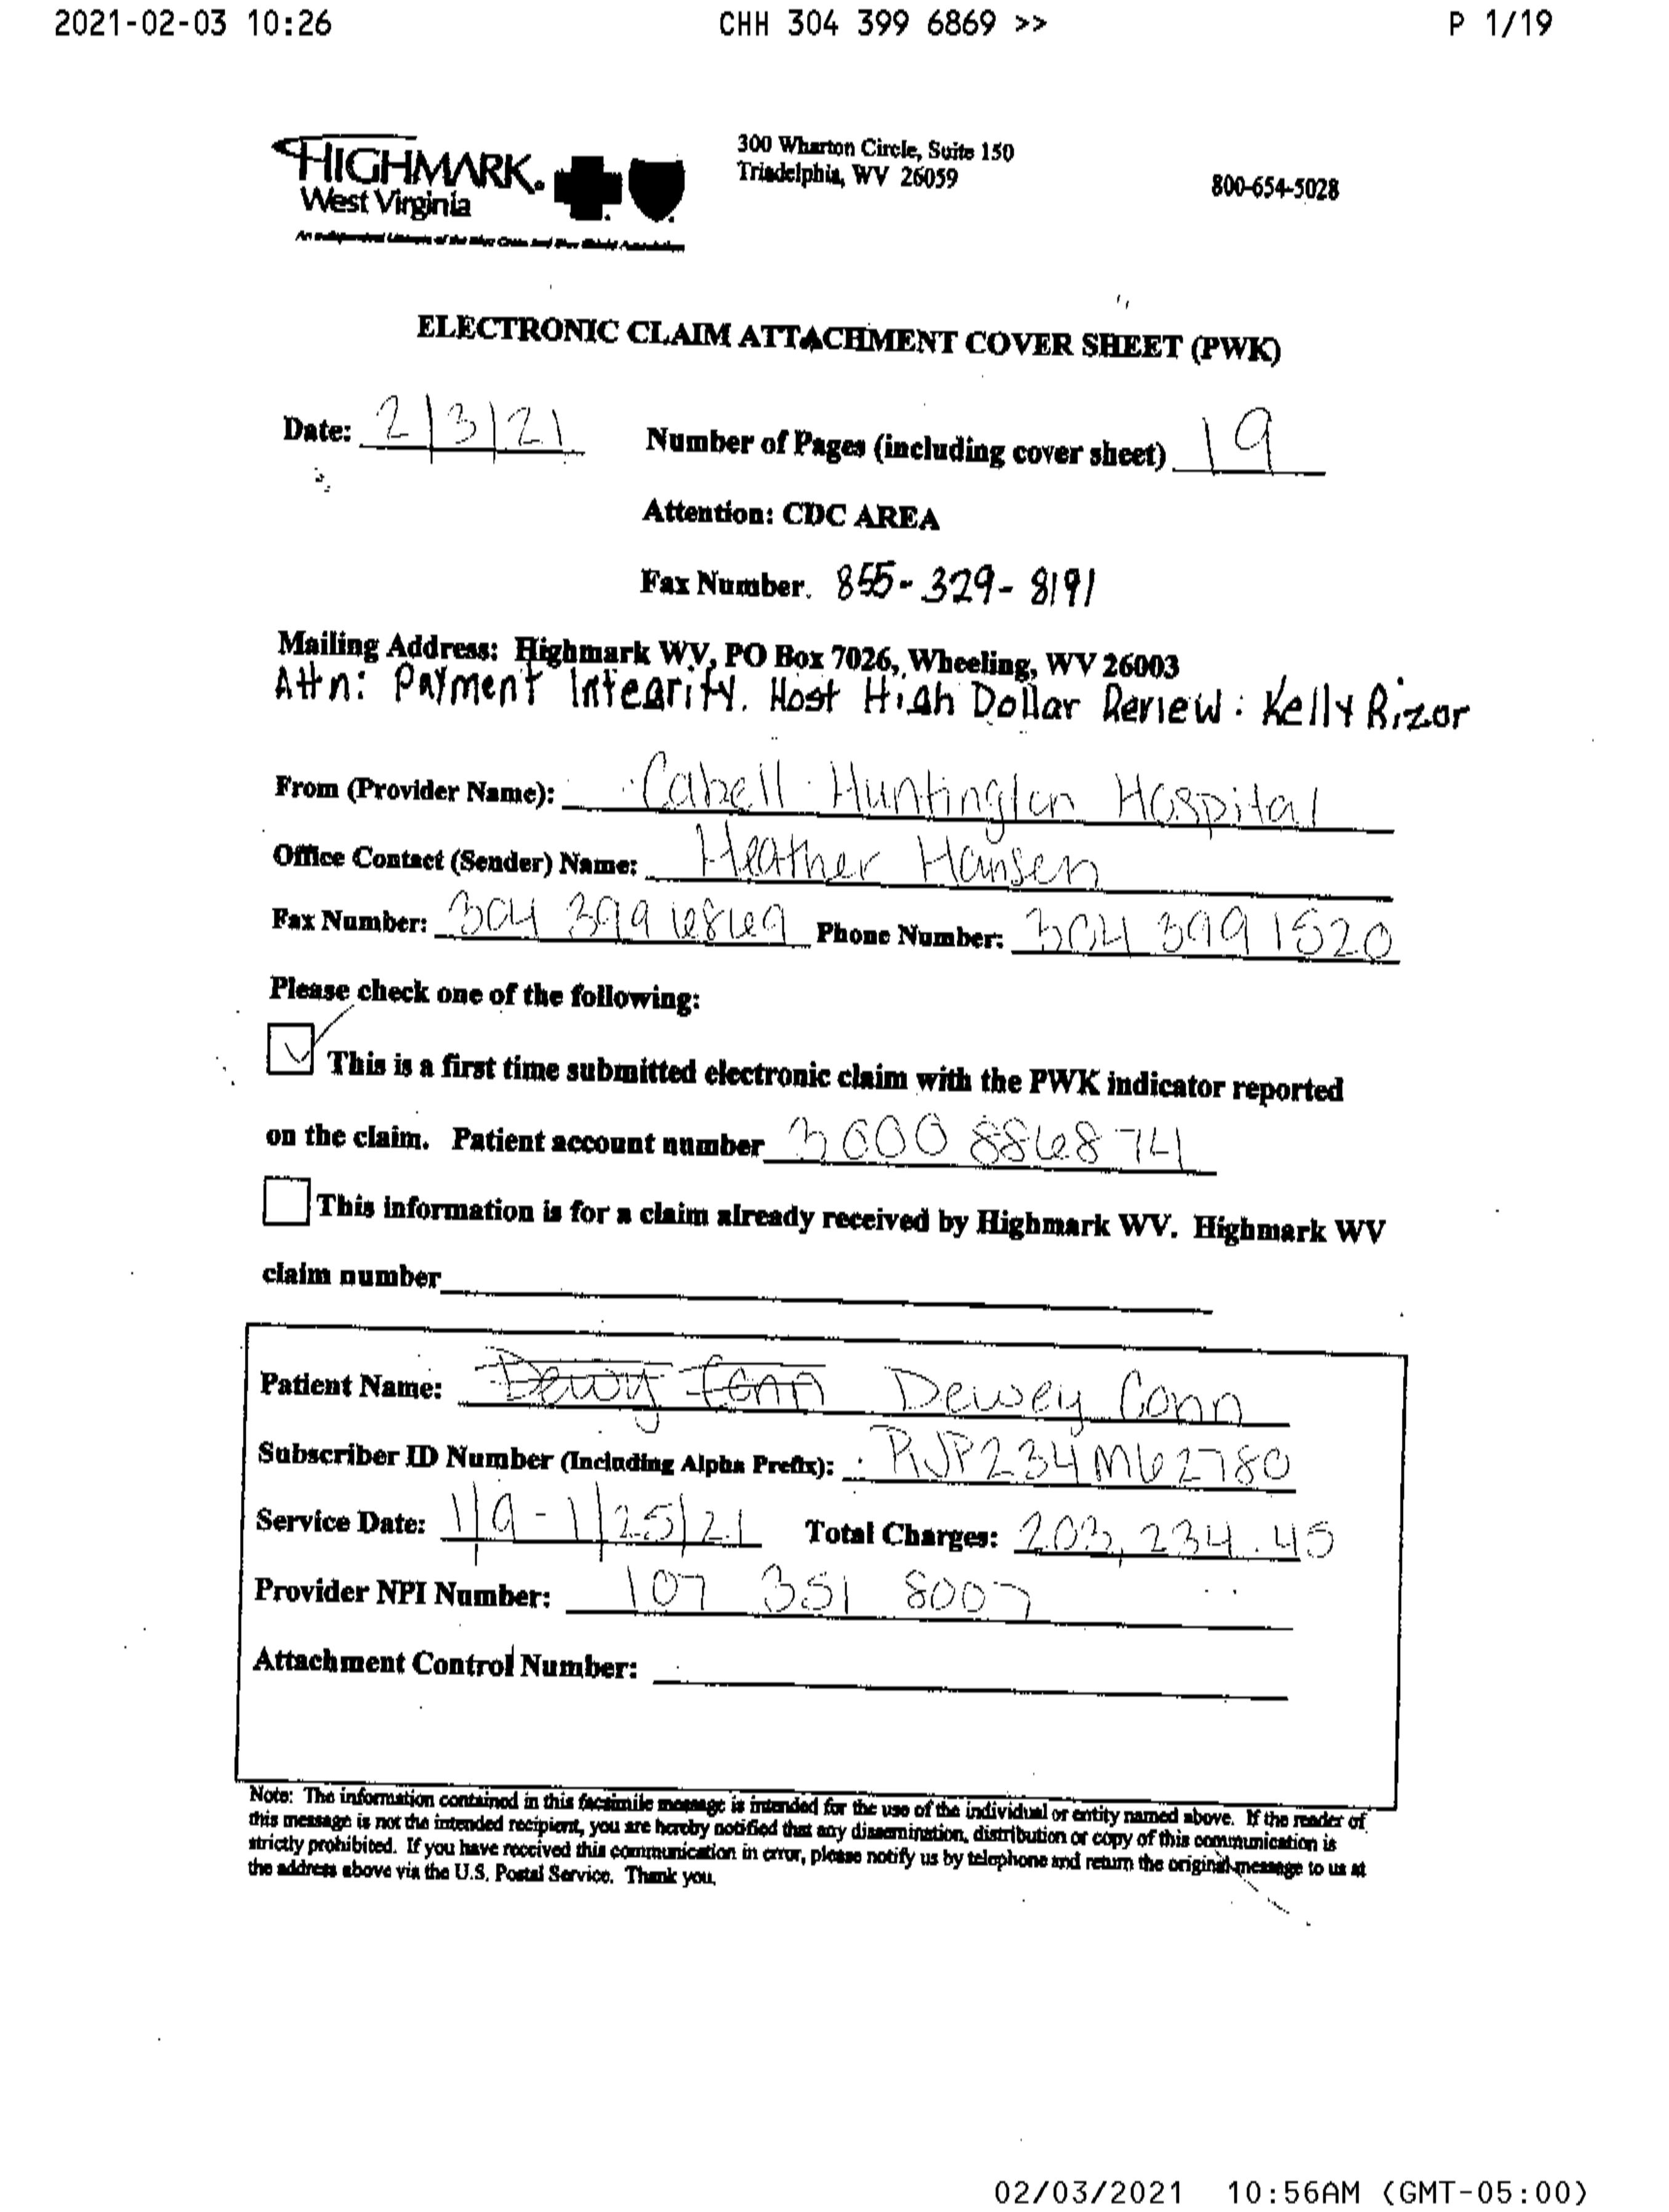 2021-02-03 10:26 CHH 304 399 6869 >> P 1/19
HIGHMARK.
West Virginia
An Independent Licensee of the Blue Cross and Blue Shield Association
300 Wharton Circle, Suite 150
Triadelphia, WV 26059
800-654-5028
ELECTRONIC CLAIM ATTACHMENT COVER SHEET (PWK)
Date: 2/3/21 Number of Pages (including cover sheet) 19
Attention: CDC AREA
Fax Number. 855-329-8191
Mailing Address: Highmark WV, PO Box 7026, Wheeling, WV 26003
Attn: Payment Integrity. Host High Dollar Review: Kelly Rizor
From (Provider Name): Cabell Huntington Hospital
Office Contact (Sender) Name: Heather Hansen
Fax Number: 304 399 6869 Phone Number: 304 399 1520
Please check one of the following:
This is a first time submitted electronic claim with the PWK indicator reported
on the claim. Patient account number 3000 886874
This information is for a claim already received by Highmark WV. Highmark WV
claim number
Patient Name: Dewy Conn Dewey Conn
Subscriber ID Number (Including Alpha Prefix): RJP234M62780
Service Date: 1/9-1/25/21 Total Charges: 203,234.45
Provider NPI Number: 107 351 8007
Attachment Control Number:
Note: The information contained in this facsimile message is intended for the use of the individual or entity named above. If the reader of
this message is not the intended recipient, you are hereby notified that any dissemination, distribution or copy of this communication is
strictly prohibited. If you have received this communication in error, please notify us by telephone and return the original message to us at
the address above via the U.S. Postal Service. Thank you.
02/03/2021 10:56AM (GMT-05:00)